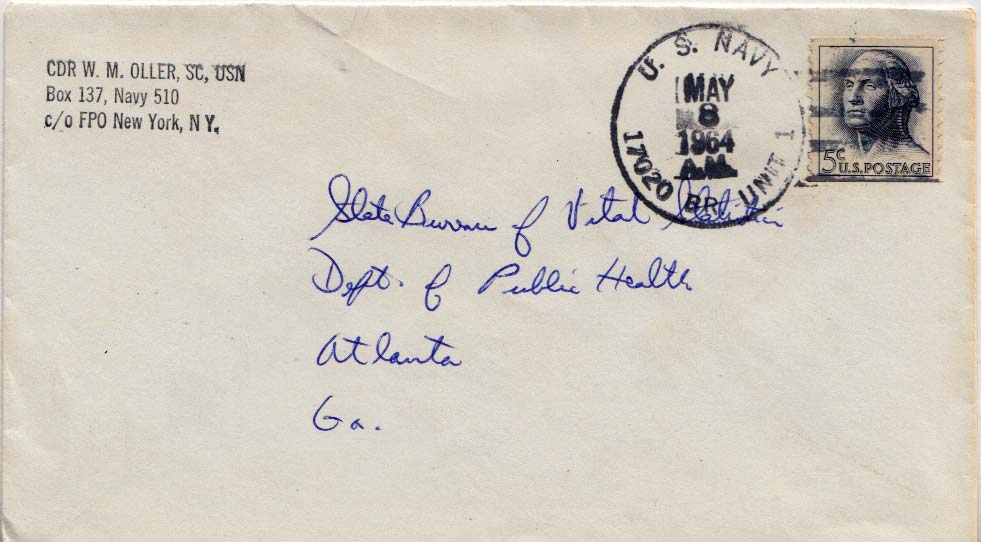 CDR W. M. OLLER, SC, USN
Box 137, Navy 510
c/o FPO New York, N Y.
U. S. NAVY
MAY
8
1964
A.M.
17020 BR. UNIT 1
5c
U.S. POSTAGE
State Bureau of Vital Statistics
Dept. of Public Health
Atlanta
Ga.